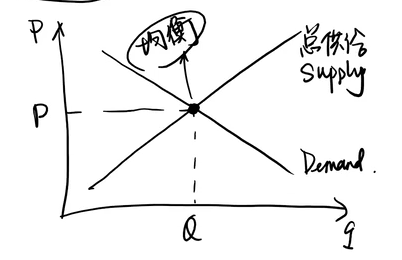 P
均衡
总供给
Supply
P
Demand.
Q
q